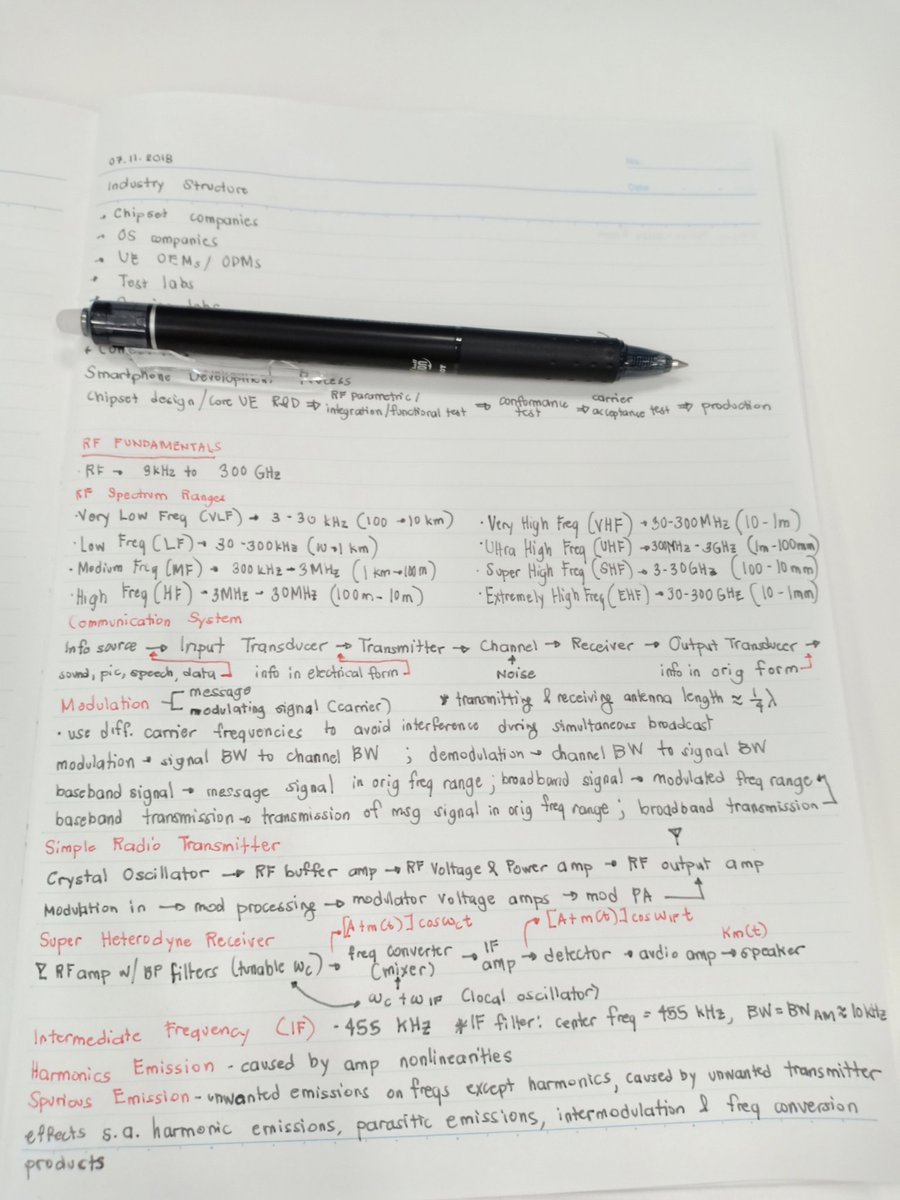 07.11.2018
No.
Date
Industry Structure
• Chipset companies
• OS companies
• UE OEMs / ODMs
• Test labs
Smartphone Development Process
Chipset design / core UE R&D ⇒ RF parametric / integration / functional test ⇒ conformance test ⇒ carrier acceptance test ⇒ production
RF FUNDAMENTALS
• RF → 9kHz to 300 GHz
RF Spectrum Ranges
• Very Low Freq (VLF) → 3-30 kHz (100 → 10 km)
• Low Freq (LF) → 30-300kHz (10→1 km)
• Medium Freq (MF) → 300 kHz → 3MHz (1 km → 100m)
• High Freq (HF) → 3MHz → 30MHz (100m - 10m)
• Very High Freq (VHF) → 30-300MHz (10-1m)
• Ultra High Freq (UHF) → 300MHz - 3GHz (1m-100mm)
• Super High Freq (SHF) → 3-30GHz (100-10mm)
• Extremely High Freq (EHF) → 30-300 GHz (10-1mm)
Communication System
Info source → Input Transducer → Transmitter → Channel → Receiver → Output Transducer →
sound, pic, speech, data info in electrical form Noise info in orig form
Modulation message
modulating signal (carrier) * transmitting & receiving antenna length ≈ 1/4 λ
• use diff. carrier frequencies to avoid interference during simultaneous broadcast
modulation → signal BW to channel BW ; demodulation → channel BW to signal BW
baseband signal → message signal in orig freq range ; broadband signal → modulated freq range
baseband transmission → transmission of msg signal in orig freq range ; broadband transmission
Simple Radio Transmitter
Crystal Oscillator → RF buffer amp → RF Voltage & Power amp → RF output amp
Modulation in → mod processing → modulator voltage amps → mod PA
Super Heterodyne Receiver [A+m(t)] cos ωct [A+m(t)] cos ωIFt Km(t)
RF amp w/ BP filters (tunable ωc) → freq converter (mixer) → IF amp → detector → audio amp → speaker
ωc + ωIF (local oscillator)
Intermediate Frequency (IF) - 455 KHz * IF filter: center freq = 455 kHz, BW = BWAM ≈ 10kHz
Harmonics Emission - caused by amp nonlinearities
Spurious Emission - unwanted emissions on freqs except harmonics, caused by unwanted transmitter
effects s.a. harmonic emissions, parasitic emissions, intermodulation & freq conversion
products